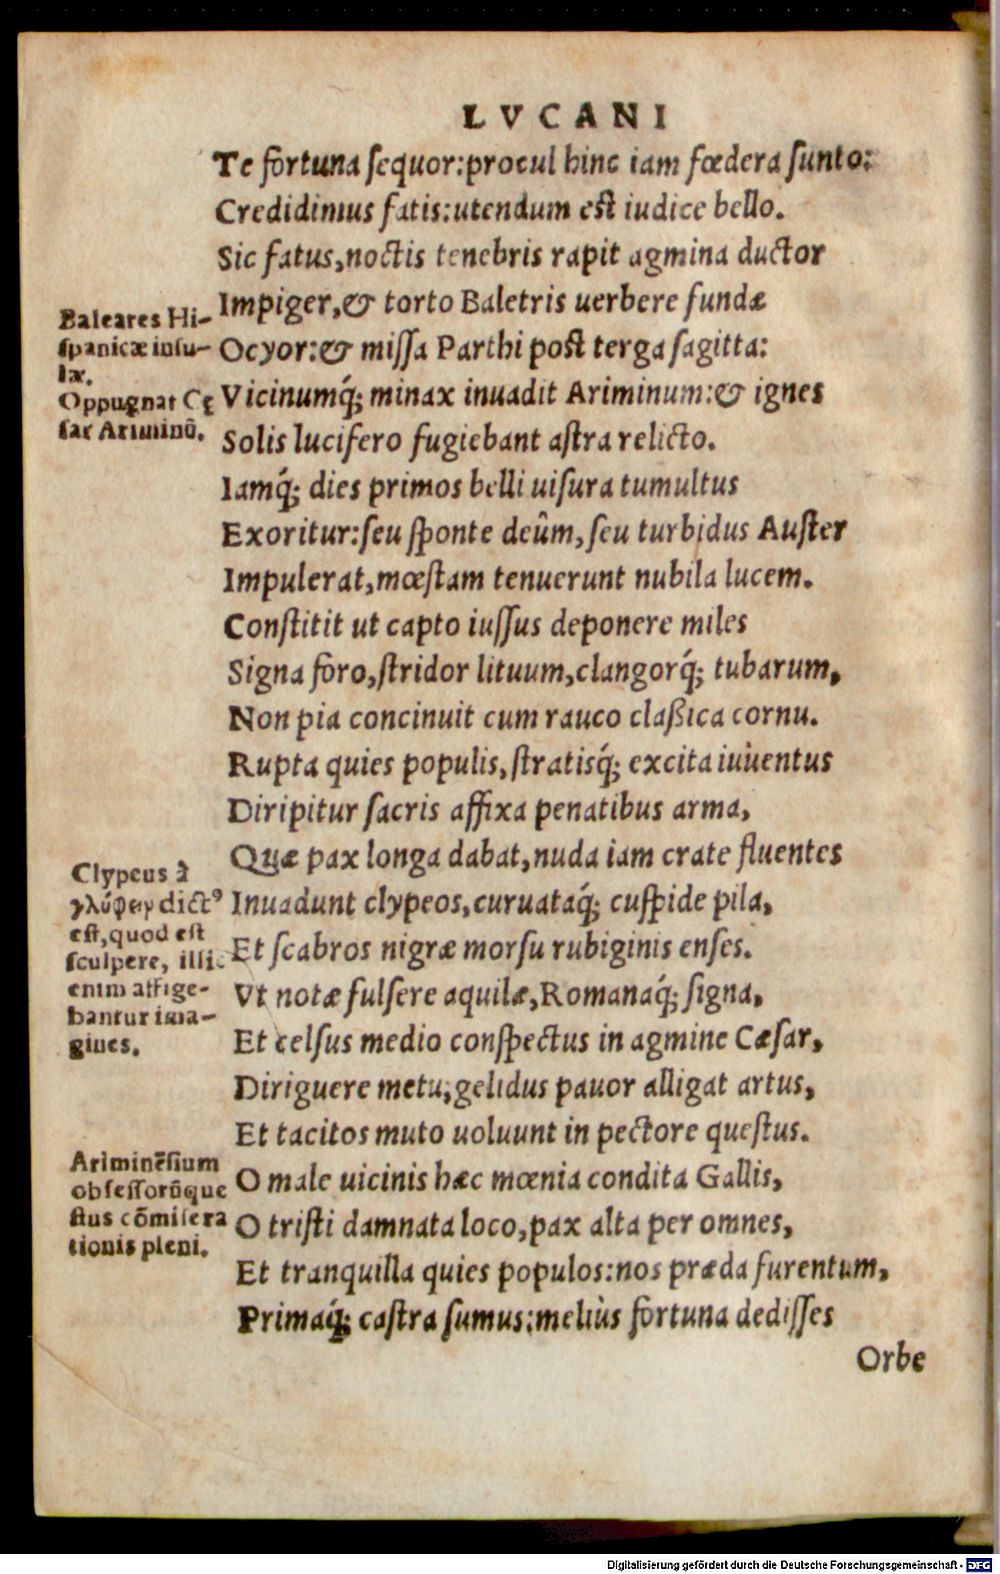 LVCANI
Te fortuna ſequor:procul hinc iam fœdera ſunto:
Credidimus fatis:utendum eſt iudice bello.
Sic fatus,noctis tenebris rapit agmina ductor
Impiger,& torto Baletris uerbere fundæ
Ocyor:& miſſa Parthi poſt terga ſagitta:
Vicinumq́; minax inuadit Ariminum:& ignes
Solis lucifero fugiebant aſtra relicto.
Iamq́; dies primos belli uiſura tumultus
Exoritur:ſeu ſponte deûm,ſeu turbidus Auſter
Impulerat,mœſtam tenuerunt nubila lucem.
Conſtitit ut capto iuſſus deponere miles
Signa foro,ſtridor lituum,clangorq́; tubarum,
Non pia concinuit cum rauco claßica cornu.
Rupta quies populis,ſtratisq́; excita iuuentus
Diripitur ſacris affixa penatibus arma,
Quæ pax longa dabat,nuda iam crate fluentes
Inuadunt clypeos,curuataq́; cuſpide pila,
Et ſcabros nigræ morſu rubiginis enſes.
Vt notæ fulſere aquilæ,Romanaq́; ſigna,
Et celſus medio conſpectus in agmine Cæſar,
Diriguere metu;gelidus pauor alligat artus,
Et tacitos muto uoluunt in pectore queſtus.
O male uicinis hæc mœnia condita Gallis,
O triſti damnata loco,pax alta per omnes,
Et tranquilla quies populos:nos præda furentum,
Primaq́; caſtra ſumus:meliùs fortuna dediſſes
Orbe
Baleares Hi-
ſpanicæ inſu-
læ.
Oppugnat Cę
ſar Ariminū.
Clypeus à
γλύφειν dictꝰ
eſt,quod eſt
ſculpere, illic
enim affige-
bantur ima-
gines.
Ariminēſium
obſeſſorūque
ſtus cōmiſera
tionis pleni.
Digitalisierung gefördert durch die Deutsche Forschungsgemeinschaft - DFG